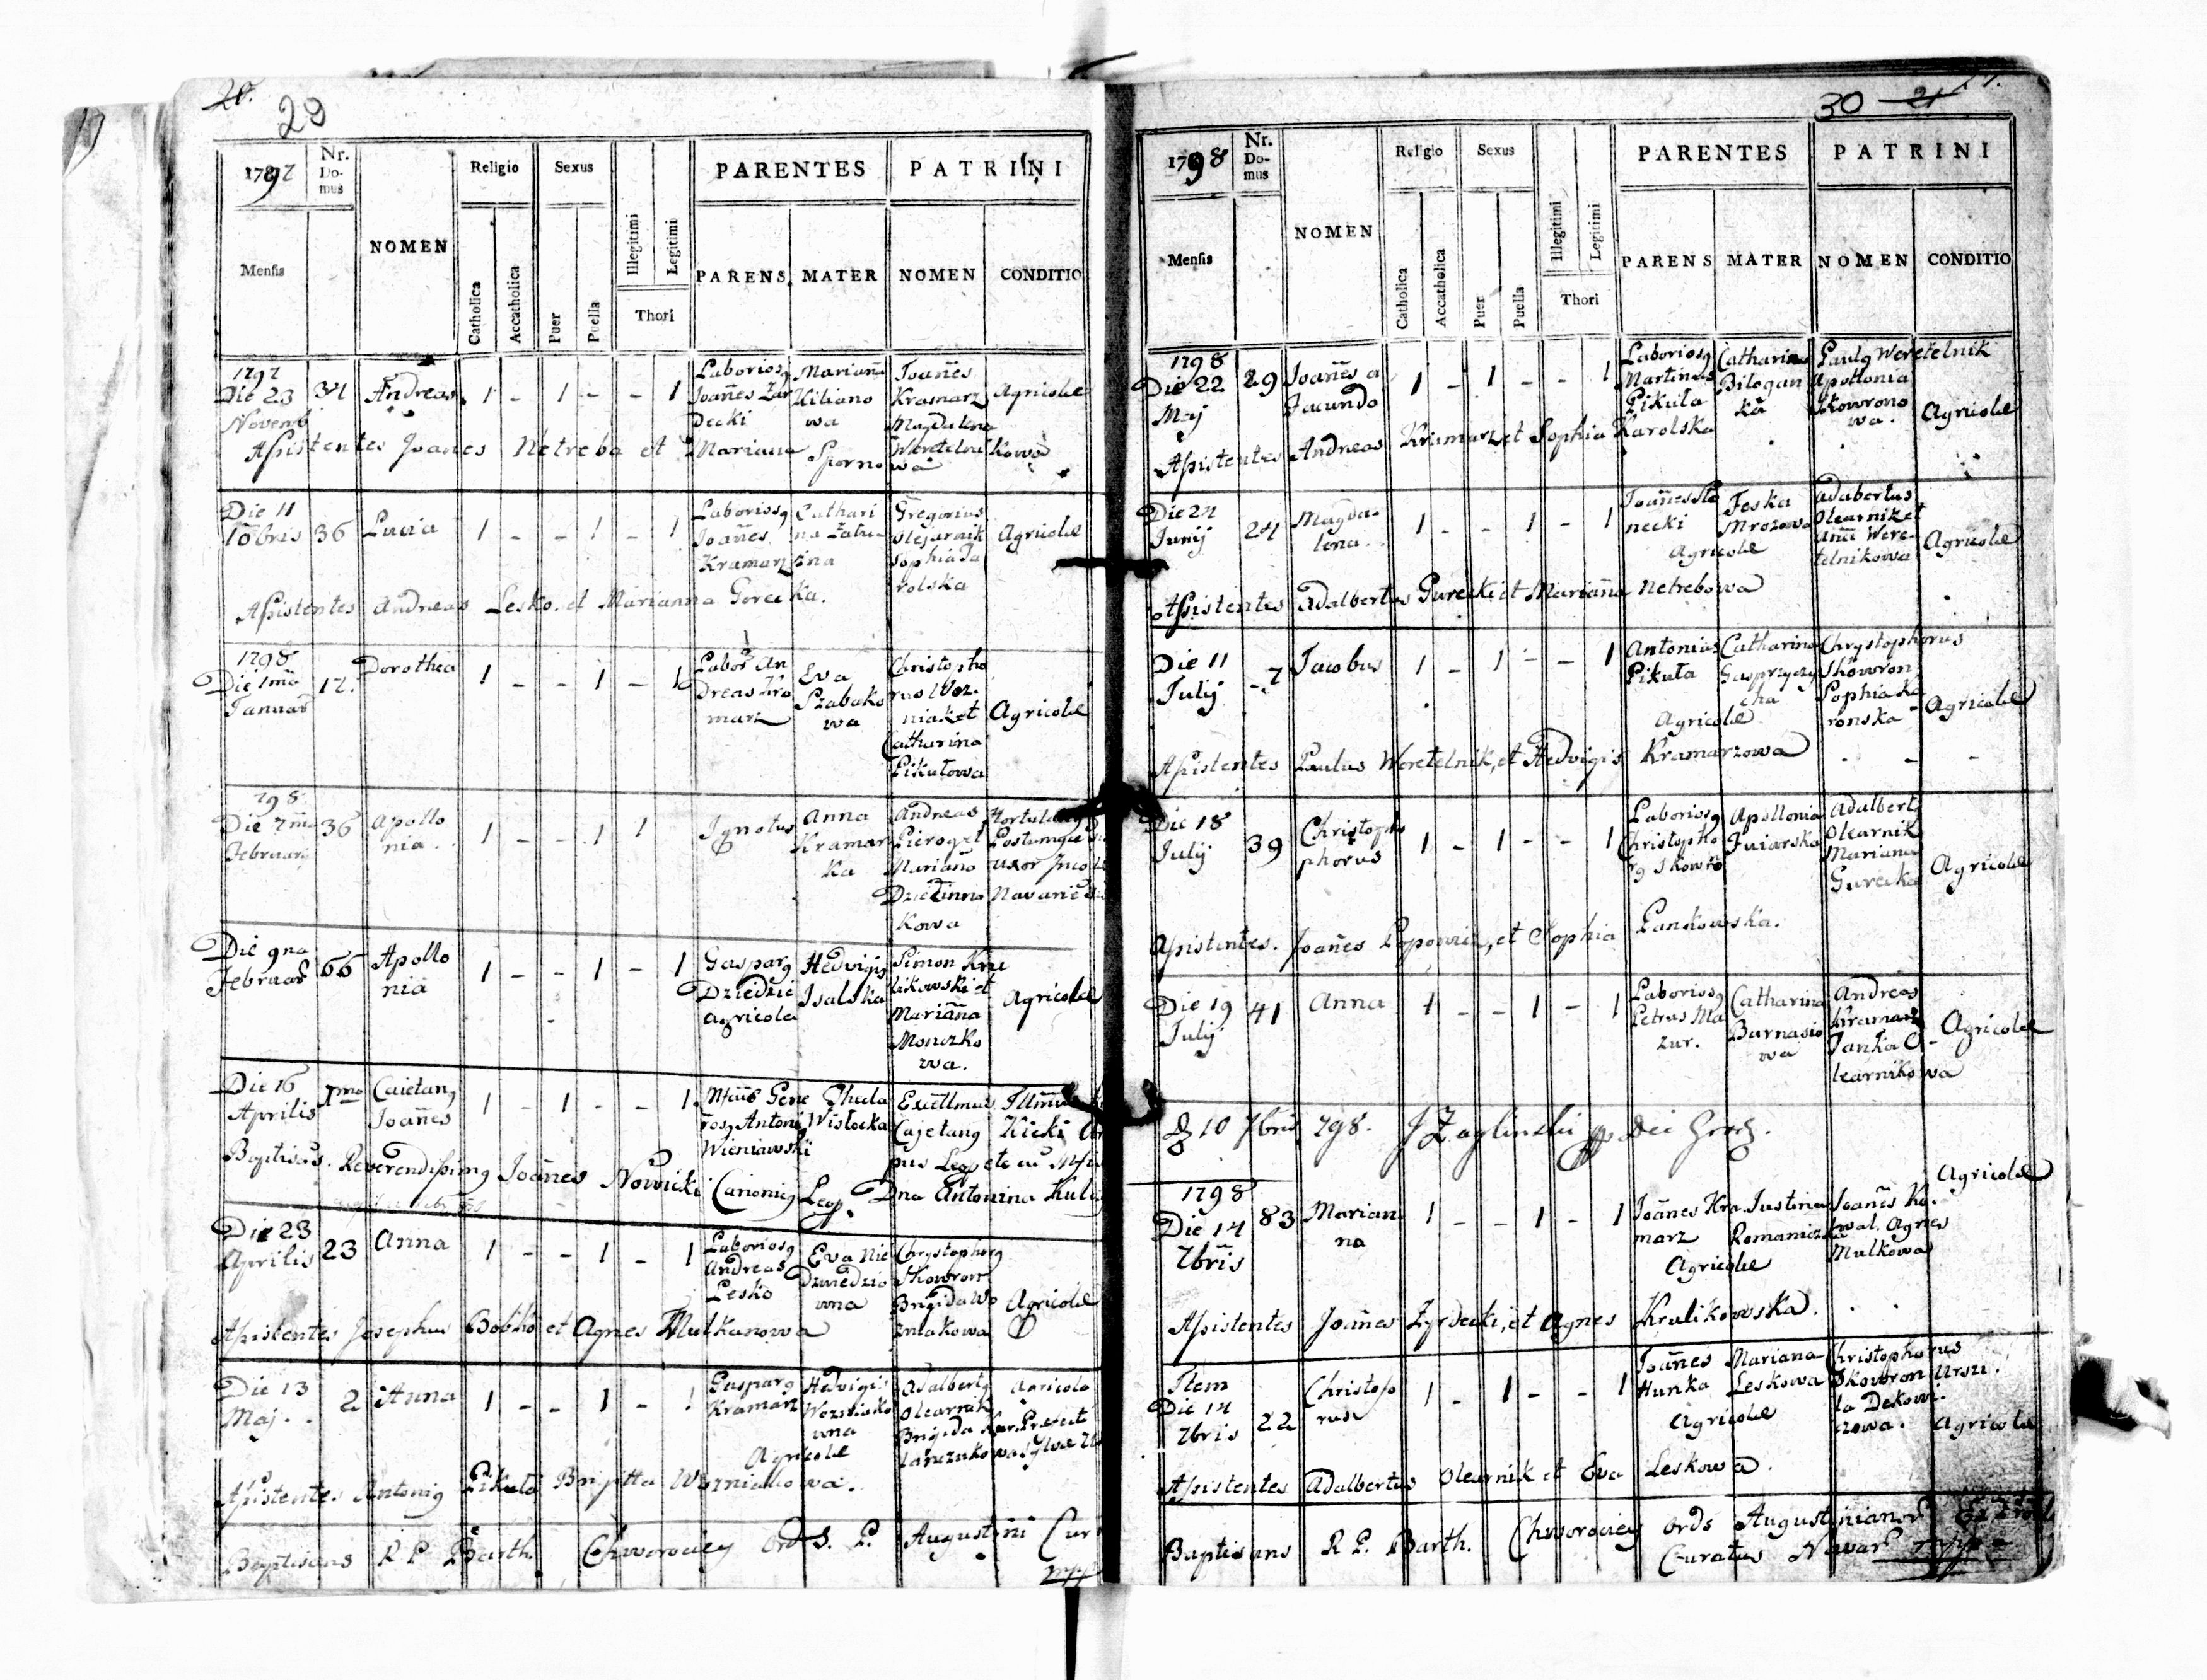 20.
29
1797
Nr. Do- mus
NOMEN
Religio
Sexus
Illegitimi
Legitimi
PARENTES
PATRINI
Mensis
Catholica
Accatholica
Puer
Puella
Thori
PARENS
MATER
NOMEN
CONDITIO
1797
Die 23 Novemb
34
Andreas
1 - 1 - - 1
Laborios9 Joañes Zyr decki
Mariaña Kiliano wa
Joañes Kramarz Magdalena Weretelni kowa
Agricolæ
Assistentes Joanes Netreba et Mariana
Die 11 10bris
36
Lucia
1 - - 1 - 1
Laborios9 Joañes Kramarz
Cathari na
Gregorius Olejarnik Sophia Ja rolska
Agricolæ
Assistentes Andreas Lesko et Marianna Gorecka.
1798
Die 1ma Januar
12.
Dorothea
1 - - 1 - 1
Labor An dreas Kra marz
Eva Szabako wa
Christopho rus Woz niak et Catharina Pikulowa
Agricolæ
798
Die 7ma Februarij
36
Apollo nia.
1 - - 1 1
Ignotus
Anna Kramar ka
Andreas Pierog et Mariana Dziedzinna kowa
uxor
Die 9na Februar
66
Apollo nia
1 - - 1 - 1
Gaspar9 Dziedzic agricola
Hedvigis Isalska
Simon Kru likowski et Mariaña Monczko wa.
Agricolæ
Die 16 Aprilis
1mo
Caietan9 Joañes
1 - 1 - - 1
Mfcus Gene ros9 Antoni9 Wieniawski
Thecla Wisłocka
Excellmus Cajetan9 Kicki
Baptisas. Reverendissim9 Joañes Nowicki Canonic9 Leop. Dna Antonina
Die 23 Aprilis
23
Anna
1 - - 1 - 1
Laborios9 Andreas Lesko
Eva Nie dzwiedzio wna
Chrystophor9 Skowron Brigida Wo zniakowa
Agricolæ
Assistentes Josephus Bobko et Agnes Mulkanowa
Die 13 Maj.
2
Anna
1 - - 1 - 1
Gaspar9 Kramarz
Hedvigis Wozniako wna
Agricolæ
Adalbert9 Olearnik Brigida
Agricola
Assistentes Antoni9 Pikula Brigitta Wozniakowa.
Baptisans R P Barth. Chworociey Ord S. P. Augustini Cur
mpp
30
21
1798
Nr. Do- mus
NOMEN
Religio
Sexus
Illegitimi
Legitimi
PARENTES
PATRINI
Mensis
Catholica
Accatholica
Puer
Puella
Thori
PARENS
MATER
NOMEN
CONDITIO
1798
Die 22 Maj
29
Joañes a Facundo
1 - 1 - - 1
Laborios9 Martinus Pikula
Catharina Bilogan ka
Paul9 Weretelnik Apollonia Skowrono wa.
Agricolæ
Assistentes Andreas Kramarz et Sophia Karolska
Die 24 Junij
24
Magda- lena.
1 - - 1 - 1
Joañes Sta necki
Feska Mrozowa
Agricolæ
Adabertus Olearnik et Aña Were- telnikowa
Agricolæ
Assistentes Adalbertus Gurecki et Mariaña Netrebowa
Die 11 Julij
7
Jacobus
1 - 1 - - 1
Antonius Pikula
Catharina Gasprzyczy cha
Agricolæ
Chrystophorus Skowron Sophia Ka ronska
Agricolæ
Assistentes Paulus Weretelnik, et Hedvigis Kramarzowa
Die 18 Julij
39
Christoph phorus
1 - 1 - - 1
Laborios9 Christopho r9 Skowro
Apollonia
Adalbert9 Olearnik Mariana Gurecka
Agricolæ
Assistentes. Joañes Popowicz, et Sophia Pankowska.
Die 19 Julij
41
Anna
1 - - 1 - 1
Laborios9 Petrus Ma zur.
Catharina Burnasio wa
Andreas Kramarz Janka O- learnikowa
Agricolæ
10 7bris 798.
1798
Die 14 7bris
83
Marian na
1 - - 1 - 1
Joañes Kra marz
Justina
Agricolæ
Joañes Ko- wal. Agnes Mulkowa
Agricolæ
Assistentes Joañes Zyrdecki, et Agnes Kralikowska.
Item Die 14 7bris
22
Christofo rus
1 - 1 - - 1
Joañes Hunka
Mariana Leskowa
Agricolæ
Christophorus Skowron Ursu. la Dekowi. czowa.
Agricolæ
Assistentes Adalbertus Olearnik et Eva Leskowa.
Baptisans R P. Barth. Chworociey Ords Augustinianor
Curatus Navar mpp